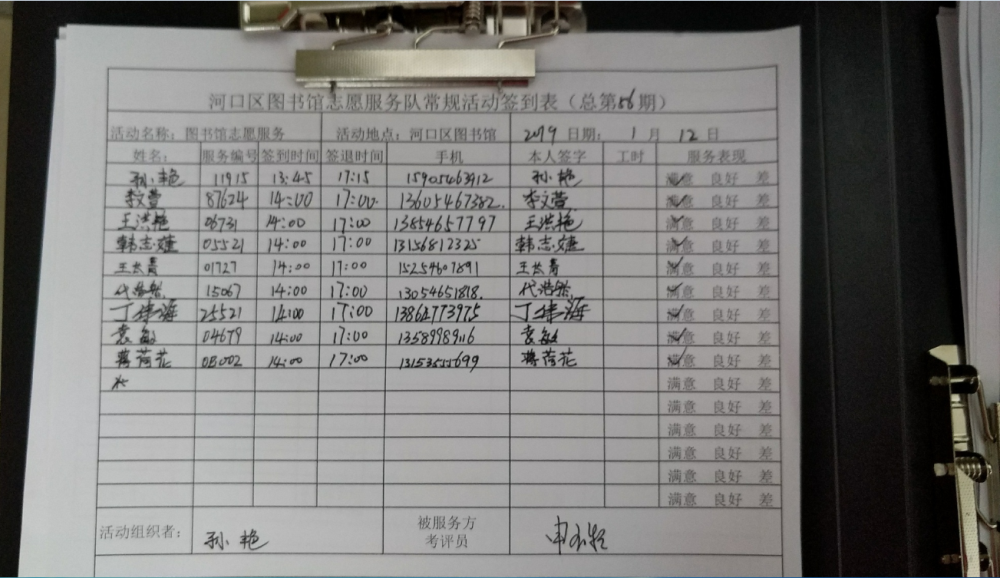 河口区图书馆志愿服务队常规活动签到表（总第56期）
活动名称：图书馆志愿服务 活动地点：河口区图书馆 2019 日期： 1 月 12 日
姓名： 服务编号 签到时间 签退时间 手机 本人签字 工时 服务表现
孙艳 11915 13:45 17:15 15905463912 孙艳 满意 良好 差
李文萱 87624 14:00 17:00 13605467382 李文萱 满意 良好 差
王洪艳 06731 14:00 17:00 13854657797 王洪艳 满意 良好 差
韩志婕 05521 14:00 17:00 13156812325 韩志婕 满意 良好 差
王长青 01727 14:00 17:00 15254607891 王长青 满意 良好 差
代浩然 15067 14:00 17:00 13054651818 代浩然 满意 良好 差
丁继海 25521 14:00 17:00 13864773975 丁继海 满意 良好 差
袁敏 04679 14:00 17:00 袁敏 满意 良好 差
蒋荷花 05002 14:00 17:00 13153555699 蒋荷花 满意 良好 差
满意 良好 差
满意 良好 差
满意 良好 差
满意 良好 差
满意 良好 差
满意 良好 差
活动组织者： 孙艳 被服务方
考评员